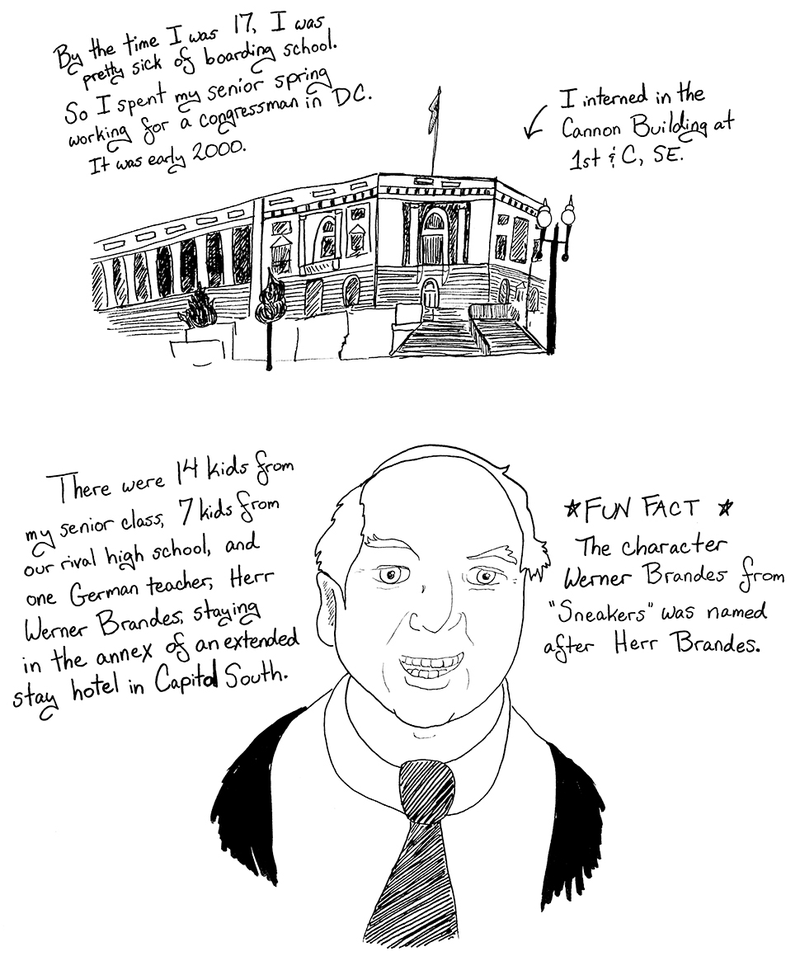 By the time I was 17, I was
pretty sick of boarding school.
So I spent my senior spring
working for a congressman in DC.
It was early 2000.
I interned in the
Cannon Building at
1st & C, SE.
There were 14 kids from
my senior class, 7 kids from
our rival high school, and
one German teacher, Herr
Werner Brandes, staying
in the annex of an extended
stay hotel in Capitol South.
★ FUN FACT ★
The character
Werner Brandes from
"Sneakers" was named
after Herr Brandes.